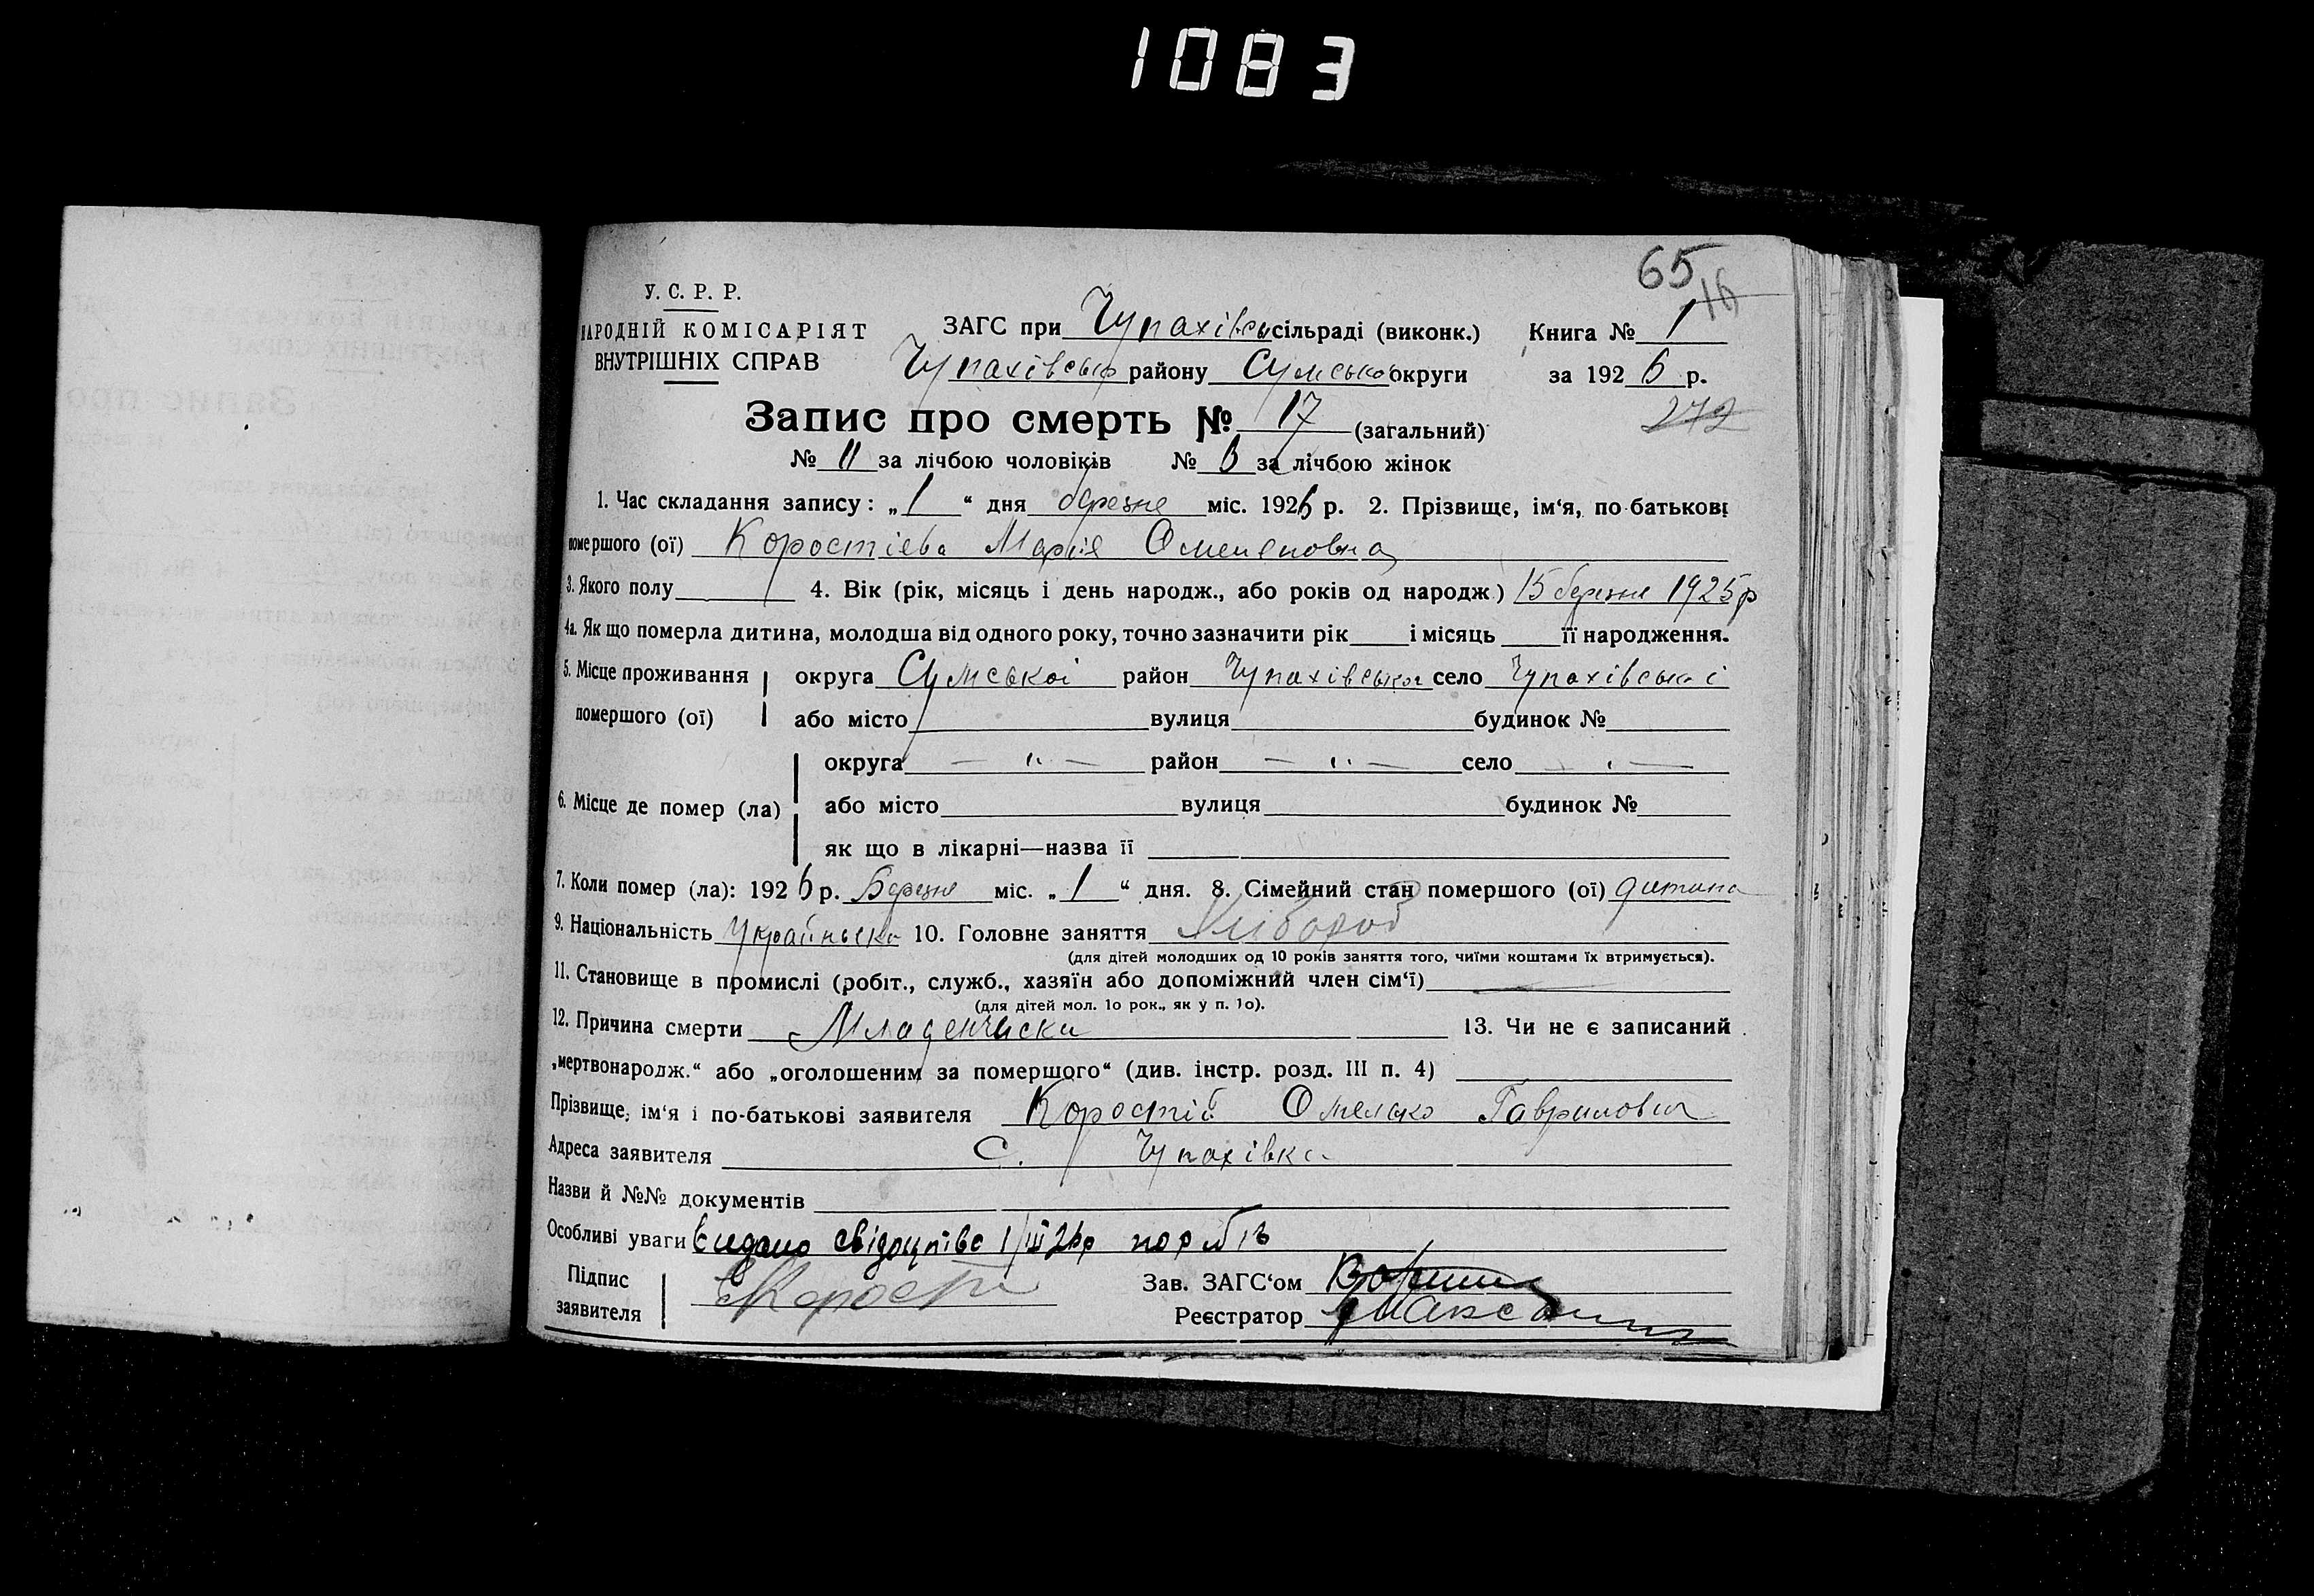 1083
65
16
У. С. Р. Р.
НАРОДНІЙ КОМІСАРІЯТ
ВНУТРІШНІХ СПРАВ
ЗАГС при Чупахівськ сільраді (виконк.) Книга № 1
Чупахівськ району Сумської округи за 1926 р.
Запис про смерть № 17 (загальний)
272
№ 11 за лічбою чоловіків № 6 за лічбою жінок
1. Час складання запису: „1“ дня березня міс. 1926 р. 2. Прізвище, ім‘я, по-батькові
помершого (ої) Коростієва Марія Омеляновна
3. Якого полу 4. Вік (рік, місяць і день народж., або років од народж) 15 березня 1925 р
4а. Як що померла дитина, молодша від одного року, точно зазначити рік і місяць її народження.
5. Місце проживання округа Сумської район Чупахівська село Чупахівської
помершого (ої) або місто вулиця будинок №
округа — „ — район — „ — село — „ —
6. Місце де помер (ла) або місто вулиця будинок №
як що в лікарні—назва її
7. Коли помер (ла): 1926 р. Березня міс. „1“ дня. 8. Сімейний стан помершого (ої) дитина
9. Національність Українська 10. Головне заняття Хлібороб
(для дітей молодших од 10 років заняття того, чиїми коштами їх втримується).
11. Становище в промислі (робіт., служб., хазяїн або допоміжний член сім‘ї)
(для дітей мол. 1о рок., як у п. 1о).
12. Причина смерти Младенческа 13. Чи не є записаний
„мертвонародж.“ або „оголошеним за помершого“ (див. інстр. розд. III п. 4)
Прізвище, ім‘я і по-батькові заявителя Коростій Омелько Гаврилович
Адреса заявителя С. Чупахівка
Назви й №№ документів
Особливі уваги видано свідоцтво 1/III 26р
Підпис заявителя Коростій
Зав. ЗАГС‘ом
Реєстратор